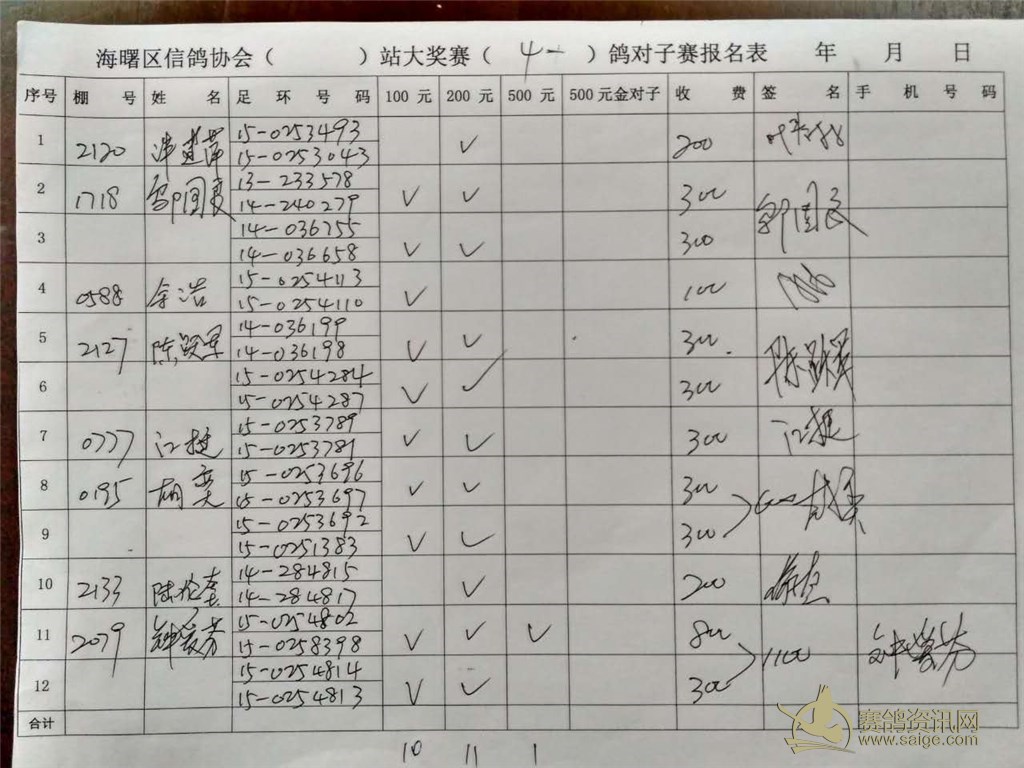 海曙区信鸽协会（ ）站大奖赛（ 4一 ）鸽对子赛报名表 年 月 日
序号 棚号 姓名 足环号码 100元 200元 500元 500元金对子 收费 签名 手机号码
1 2120 15-0253493 ✓ 200
15-0253043
2 1718 邹国良 13-233578 ✓ ✓ 300 邹国良
14-240279
3 14-036755 ✓ ✓ 300
14-036658
4 0588 余浩 15-0254113 ✓ 100
15-0254110
5 2127 陈跃军 14-036199 ✓ ✓ 300 陈跃军
14-036198
6 15-0254284 ✓ ✓ 300
15-0254287
7 0777 江挺 15-0253789 ✓ ✓ 300 江挺
15-0253781
8 0195 胡奕 15-0253696 ✓ ✓ 300 600 胡奕
15-0253697
9 15-0253692 ✓ ✓ 300
15-0251383
10 2133 14-284815 ✓ 200
14-284817
11 2079 15-0254802 ✓ ✓ ✓ 800 1100
15-0258398
12 15-0254814 ✓ ✓ 300
15-0254813
合计
10 11 1
赛鸽资讯网
www.saige.com